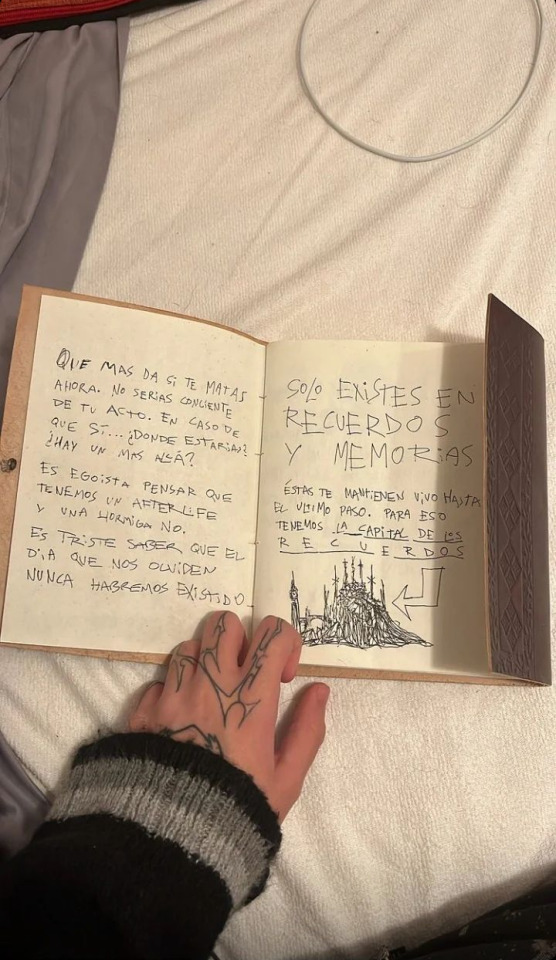 QUE MAS DA SI TE MATAS
AHORA. NO SERIAS CONCIENTE
DE TU ACTO. EN CASO DE
QUE SÍ... ¿DONDE ESTARIAS?
¿HAY UN MAS ALLÁ?
ES EGOISTA PENSAR QUE
TENEMOS UN AFTERLIFE
Y UNA HORMIGA NO.
ES TRISTE SABER QUE EL
DIA QUE NOS OLVIDEN
NUNCA HABREMOS EXISTIDO
SOLO EXISTES EN
RECUERDOS
Y MEMORIAS
ÉSTAS TE MANTIENEN VIVO HASTA
EL ULTIMO PASO. PARA ESO
TENEMOS LA CAPITAL DE LOS
RECUERDOS